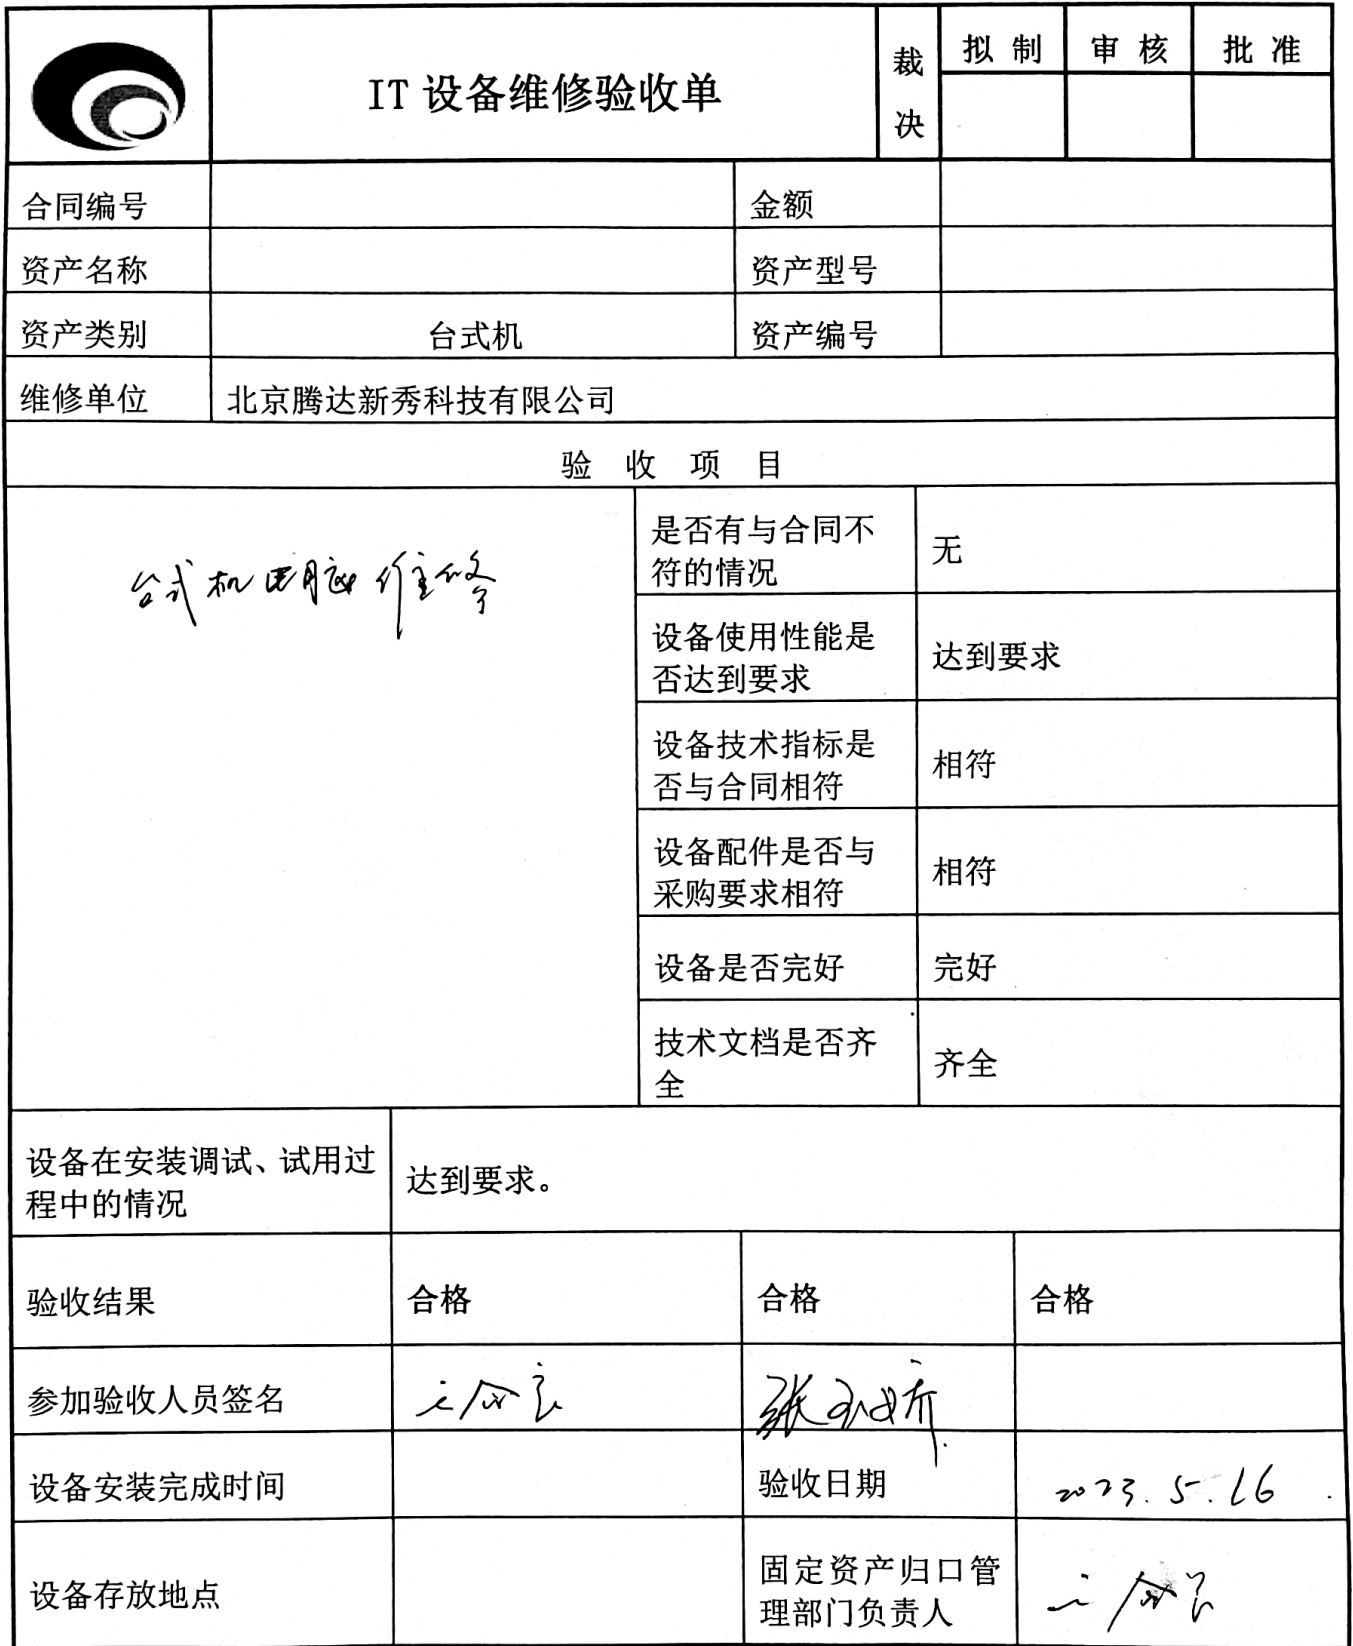 IT 设备维修验收单
裁决
拟 制
审 核
批 准
合同编号
金额
资产名称
资产型号
资产类别
台式机
资产编号
维修单位
北京腾达新秀科技有限公司
验 收 项 目
台式机电脑维修
是否有与合同不
符的情况
无
设备使用性能是
否达到要求
达到要求
设备技术指标是
否与合同相符
相符
设备配件是否与
采购要求相符
相符
设备是否完好
完好
技术文档是否齐
全
齐全
设备在安装调试、试用过
程中的情况
达到要求。
验收结果
合格
合格
合格
参加验收人员签名
设备安装完成时间
验收日期
2023.5.16
设备存放地点
固定资产归口管
理部门负责人